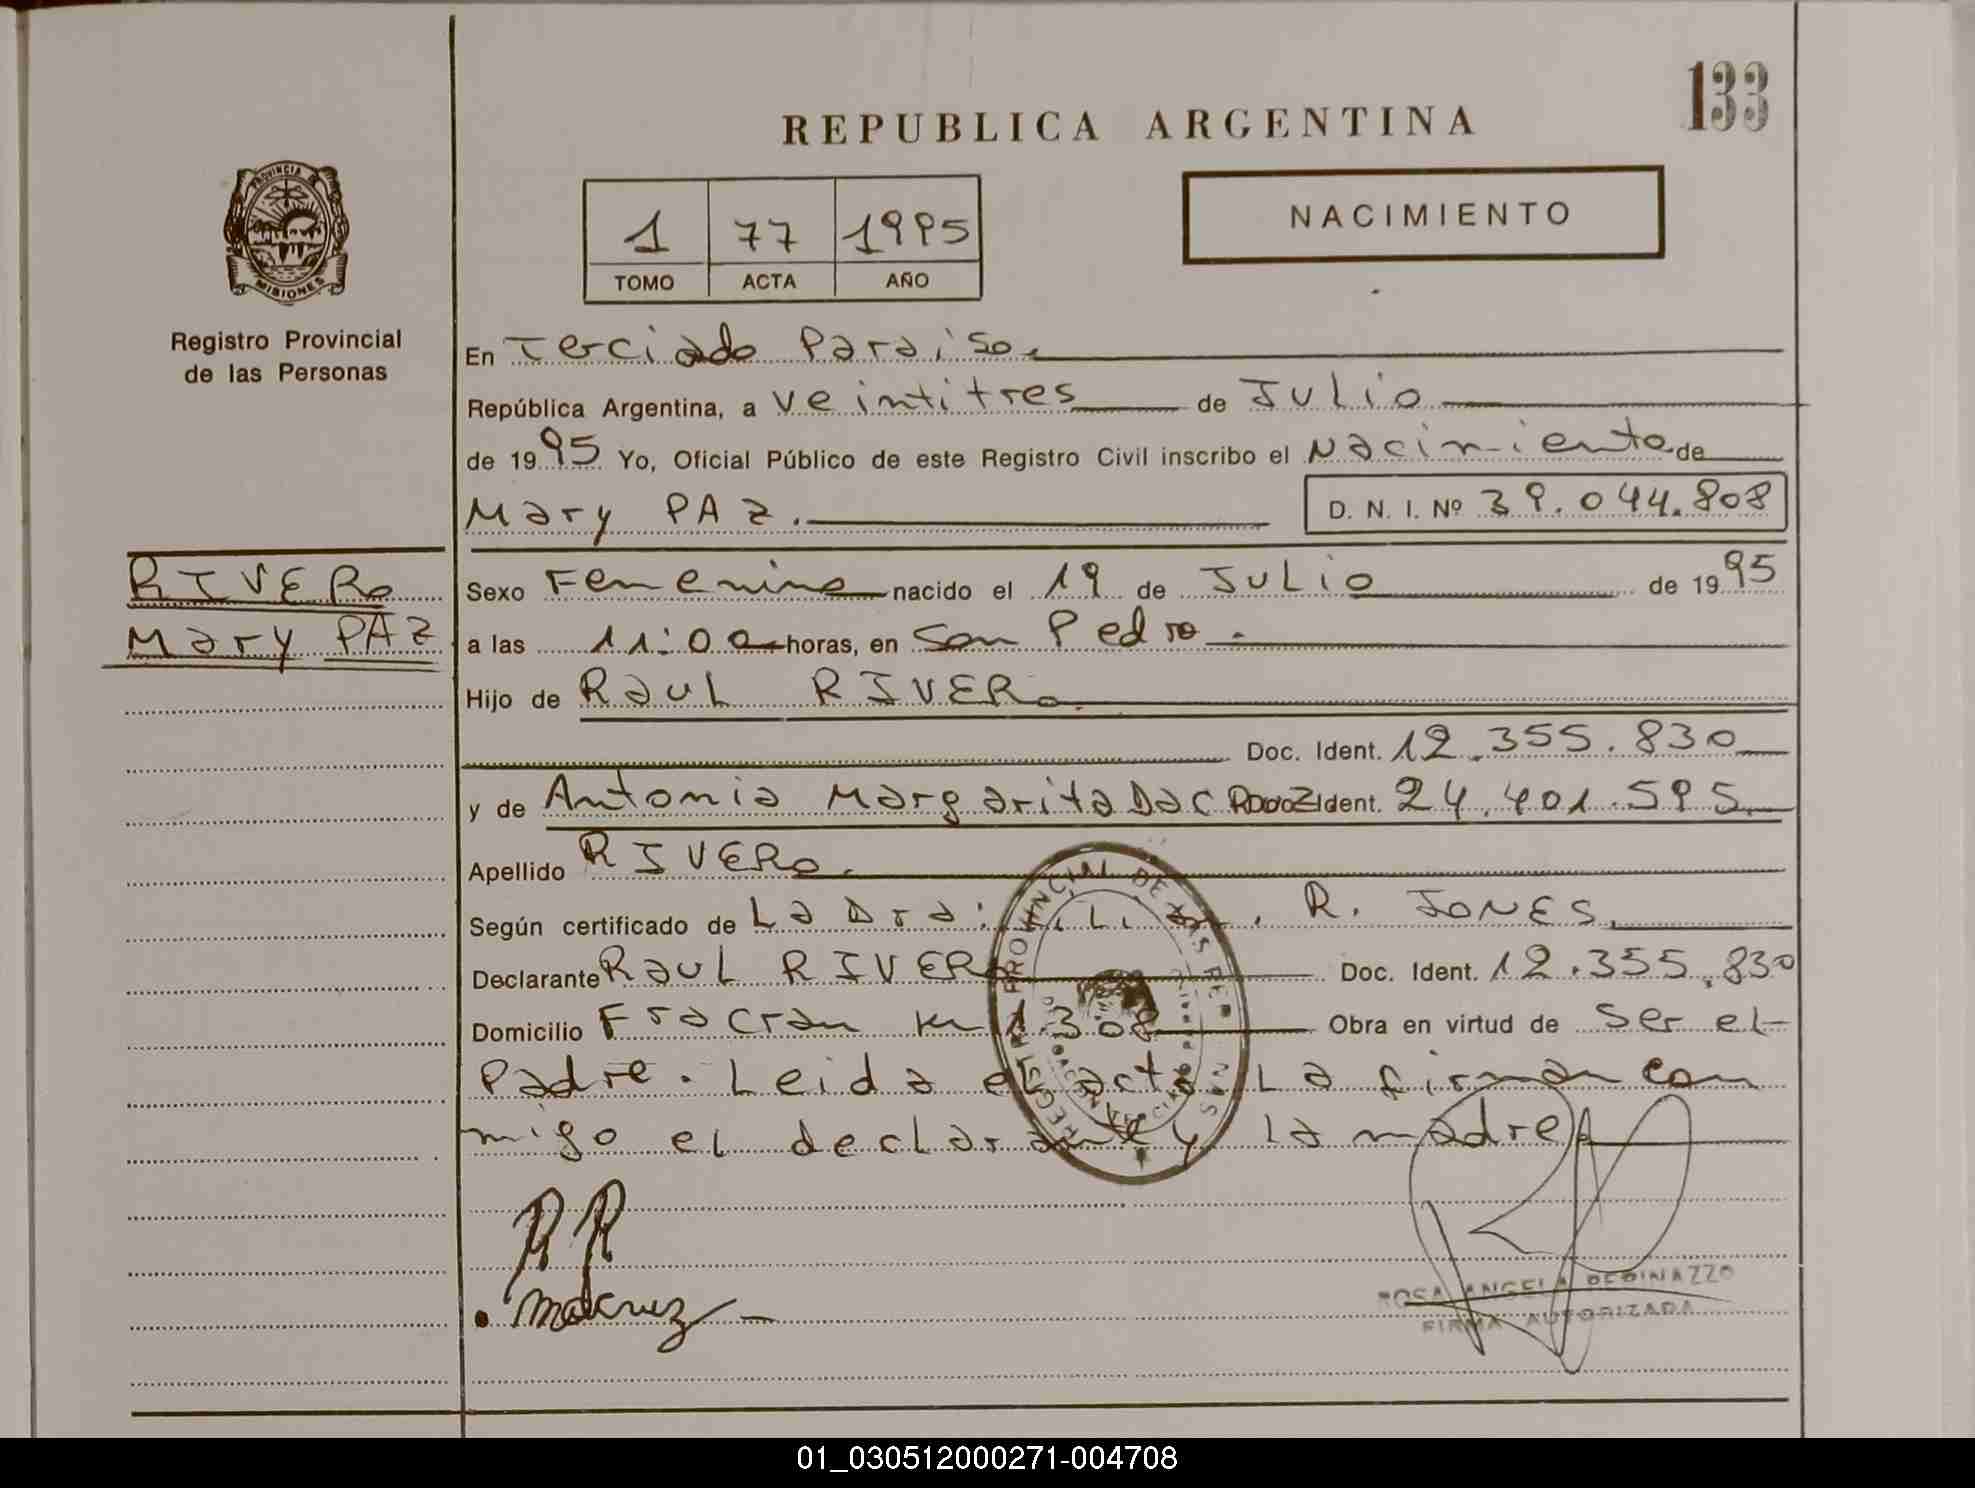 133
REPUBLICA ARGENTINA
PROVINCIA DE
MISIONES
Registro Provincial
de las Personas
1 77 1995
TOMO ACTA AÑO
NACIMIENTO
En Terciado Paraiso.
República Argentina, a veintitres de Julio
de 1995 Yo, Oficial Público de este Registro Civil inscribo el Nacimiento de
Mary PAZ. D. N. I. Nº 39.044.808
RIVERo
Mary PAZ
Sexo Femenino nacido el 19 de Julio de 1995
a las 11:00 horas, en San Pedro.
Hijo de Raul RIVERo.
Doc. Ident. 12.355.830
y de Antonia Margarita Da CRUZ Doc. Ident. 24.401.595
Apellido RIVERo.
Según certificado de La Dra: R. JONES.
Declarante Raul RIVERo Doc. Ident. 12.355.830
Domicilio Fracran km 1308 Obra en virtud de ser el
Padre. Leida el acta La firman con
migo el declarante y La madre
REGISTRO PROVINCIAL DE LAS PERSONAS
RR
Madcruz
ROSA ANGELA PEDINAZZO
FIRMA AUTORIZADA
01_030512000271-004708